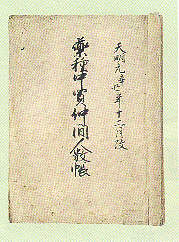 天明元辛丑年十二月改
薬種中買仲間人数帳